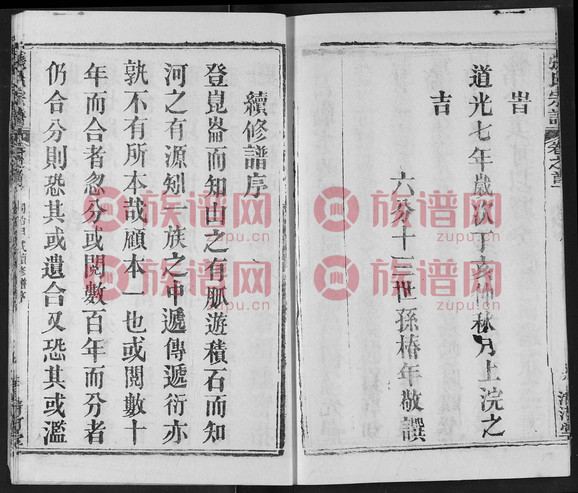 旹
道光七年歲次丁亥仲秋月上浣之
吉
六分十三世孫椿年敬譔
續修譜序
登崑崙而知山之有脈遊積石而知
河之有源矧一族之中遞傳遞衍亦
孰不有所本哉顧本一也或閱數十
年而合者忽分或閱數百年而分者
仍合分則恐其或遺合又恐其或濫
族谱网
zupu.cn
族谱网
zupu.cn
族谱网
zupu.cn
族谱网
zupu.cn